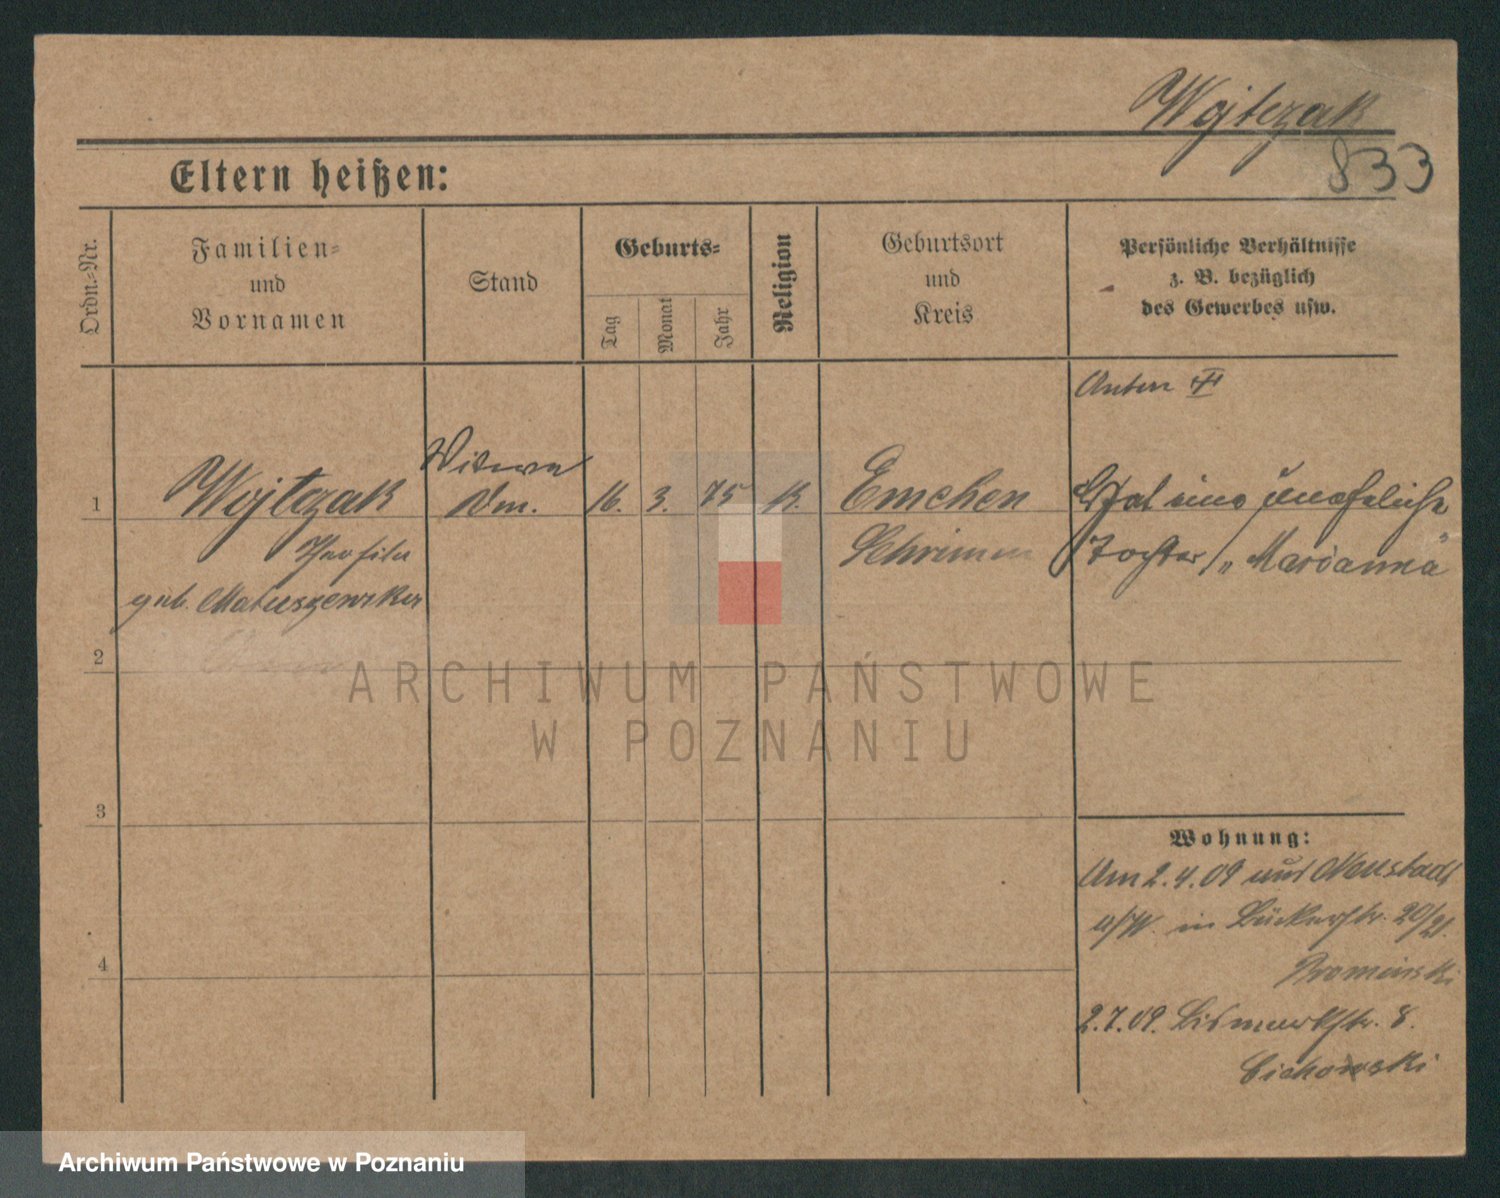 Wojtczak
833
Eltern heißen:
Ordn.-Nr.
Familien-
und
Vornamen
Stand
Geburts-
Tag
Monat
Jahr
Religion
Geburtsort
und
Kreis
Persönliche Verhältnisse
z. B. bezüglich
des Gewerbes usw.
Witwe
1 Wojtczak 16. 3. 75 K. Emchen Hat eine uneheliche
Schrimm Tochter „Marianna"
geb. Matuszewska
2
3
4
Wohnung:
Am 2.4.09 aus Neustadt
a/W. in Bäckerstr. 20/21.
2.7.09. Bismarckstr. 8.
Cichowski
ARCHIWUM PAŃSTWOWE
W POZNANIU
Archiwum Państwowe w Poznaniu